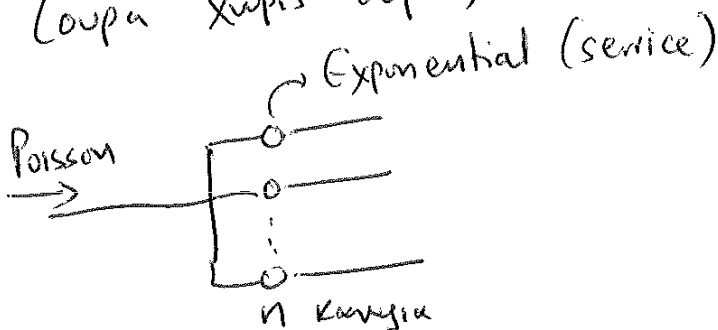 χωρίς
Exponential (service)
Poisson
n κανάλια